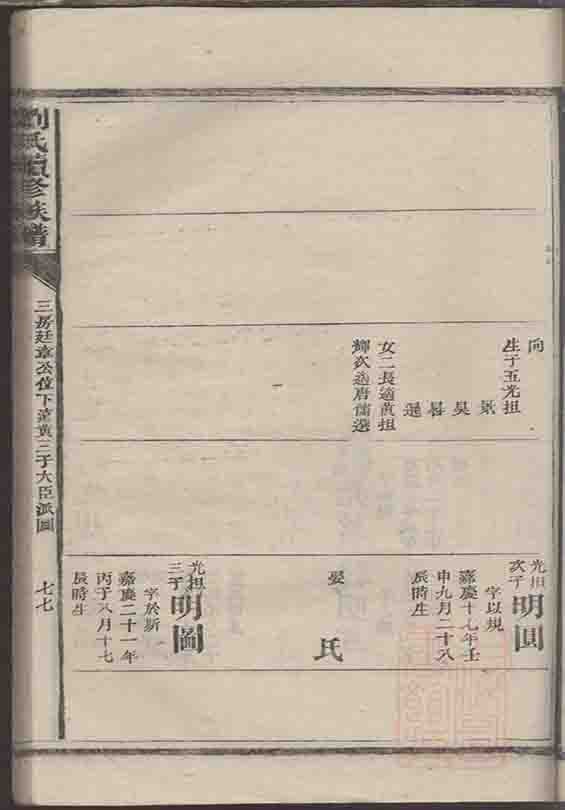 向
生子五光担
炅
昊
晷
暹
女二長適黃担
輝次適唐儒選
光担
次子
明圓
字以規
嘉慶十七年壬
申九月二十八
辰時生
娶
氏
光担
三子
明圖
字於斯
嘉慶二十一年
丙子八月十七
辰時生
劉氏續修族譜
三房廷章公位下萱黃三子大臣派圖
七七